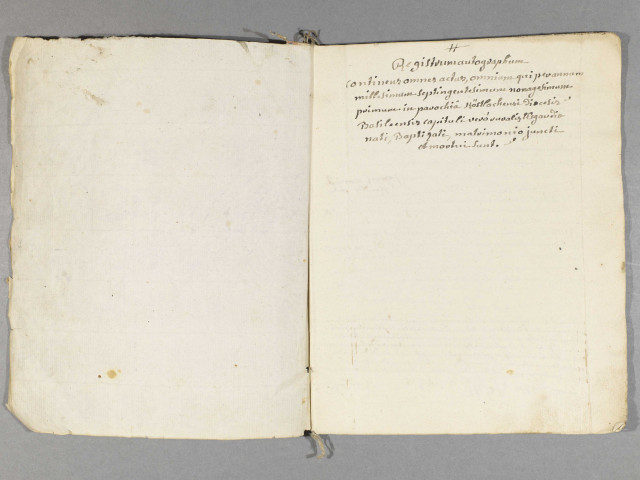 Registrum autographum
continens omnes actas, omnium qui per annum
millesimum septingentesimum nonagesimum
primum in parochiâ diocesis
Basileensis capituli vero ruralis
nati, Baptizati, matrimonio juncti
et mortui sunt.